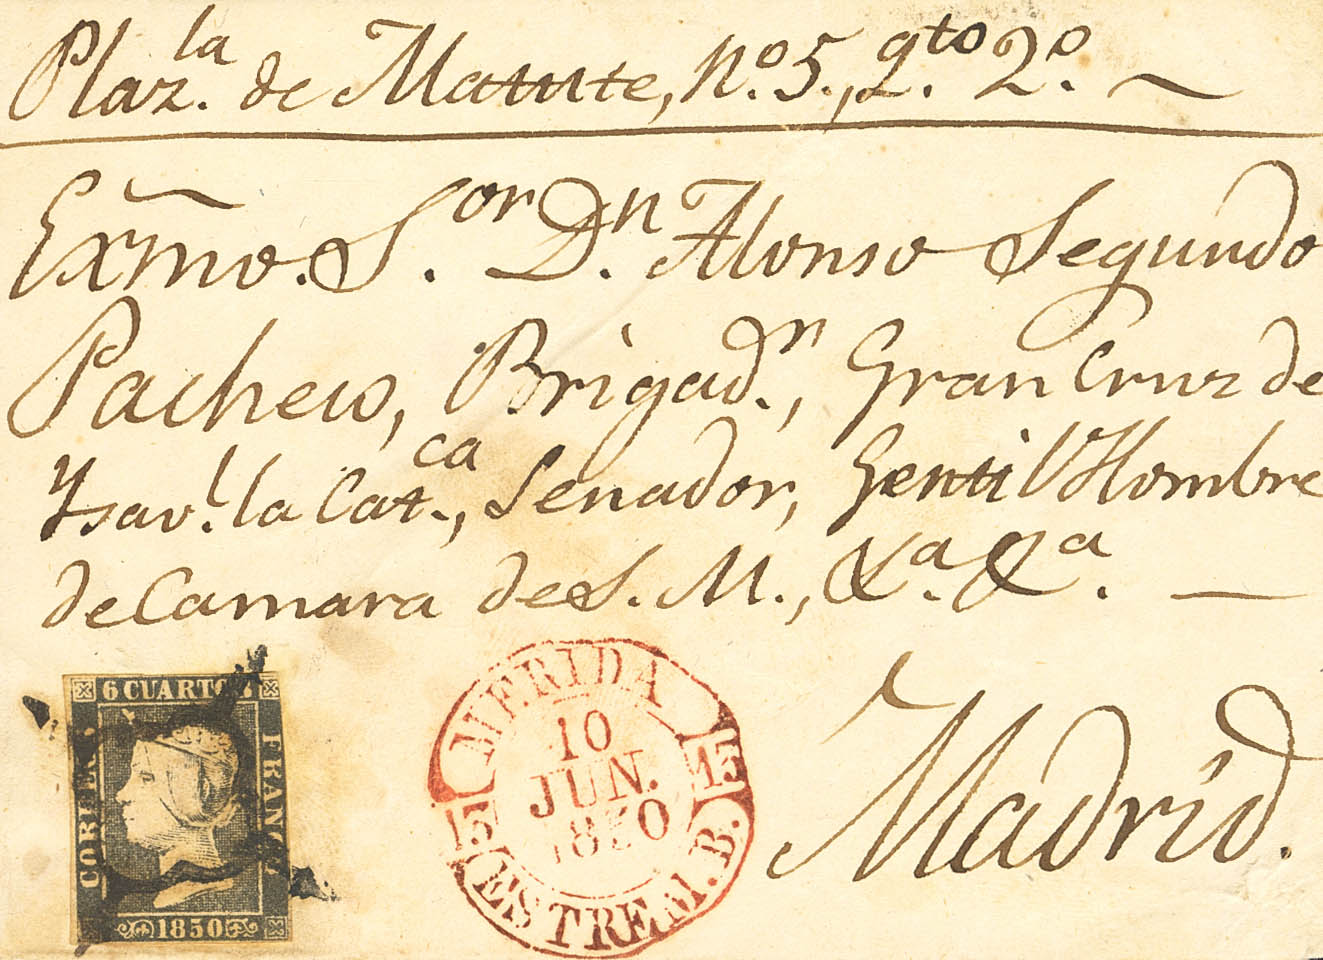 Plaz.la de Matute, nº. 5., qto. 2º.
Exm̃o. S.or D.n Alonso Segundo
Pacheco, Brigad.r, Gran Cruz de
Ysav.l la Cat.ca, Senador, Gentil Hombre
de Camara de S. M., &a. &a.
Madrid.
6 CUARTOS
CORREOS
FRANCO
1850
MERIDA
10
JUN.
1850
15
15
ESTREM. B.